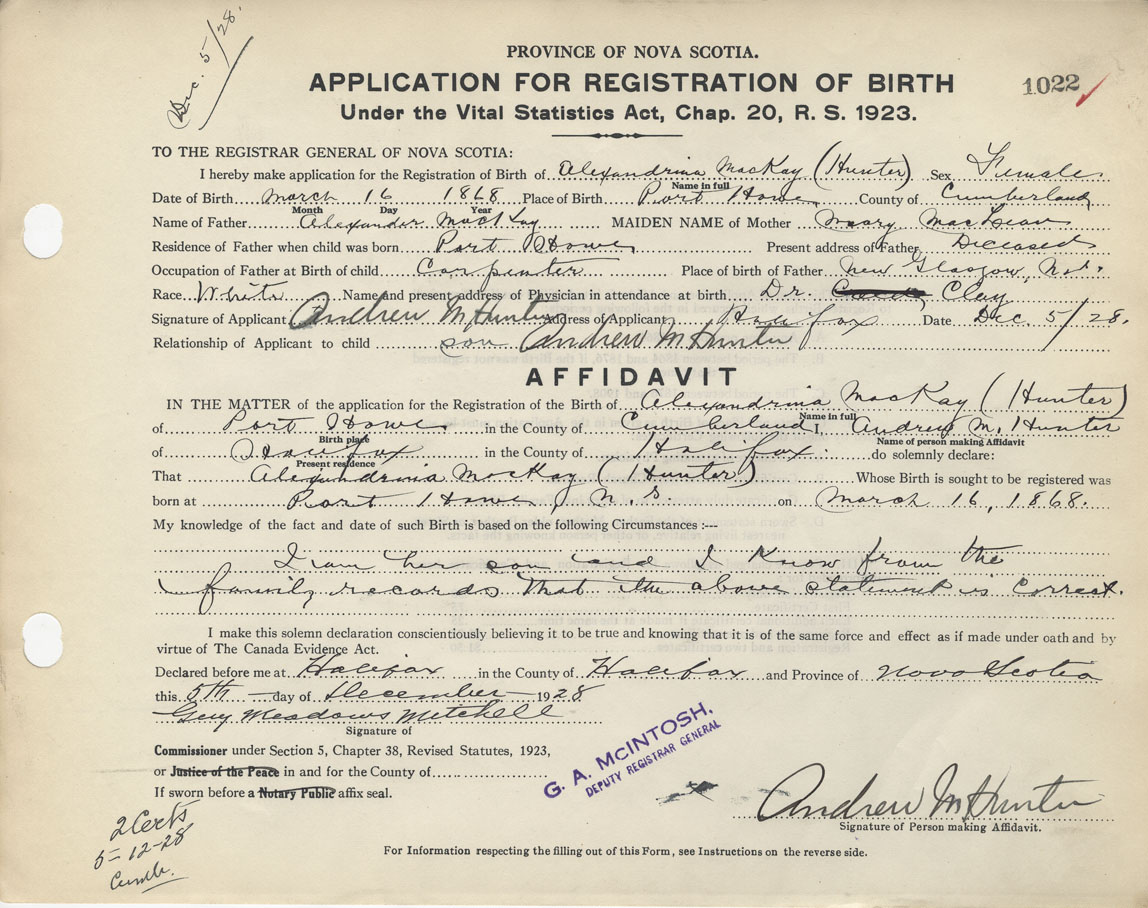 Dec. 5/28.
PROVINCE OF NOVA SCOTIA.
APPLICATION FOR REGISTRATION OF BIRTH
1022
Under the Vital Statistics Act, Chap. 20, R. S. 1923.
TO THE REGISTRAR GENERAL OF NOVA SCOTIA:
I hereby make application for the Registration of Birth of Alexandrina MacKay (Hunter) Sex Female
Name in full
Date of Birth March 16 1868 Place of Birth Port Howe County of Cumberland
Month Day Year
Name of Father Alexander MacKay MAIDEN NAME of Mother Mary MacLean
Residence of Father when child was born Port Howe Present address of Father Deceased
Occupation of Father at Birth of child Carpenter Place of birth of Father New Glasgow, N.S.
Race White Name and present address of Physician in attendance at birth Dr. Clay
Signature of Applicant Andrew M Hunter Address of Applicant Halifax Date Dec. 5/28.
Relationship of Applicant to child son Andrew M Hunter
AFFIDAVIT
IN THE MATTER of the application for the Registration of the Birth of Alexandrina MacKay (Hunter)
Name in full
of Port Howe in the County of Cumberland I, Andrew M. Hunter
Birth place Name of person making Affidavit
of Halifax in the County of Halifax do solemnly declare:
Present residence
That Alexandrina MacKay (Hunter) Whose Birth is sought to be registered was
born at Port Howe, N.S. on March 16, 1868.
My knowledge of the fact and date of such Birth is based on the following Circumstances :---
I am her son and I know from the
family records that the above statement is correct.
I make this solemn declaration conscientiously believing it to be true and knowing that it is of the same force and effect as if made under oath and by
virtue of The Canada Evidence Act.
Declared before me at Halifax in the County of Halifax and Province of Nova Scotia
this 5th day of December 1928
Guy Meadows Mitchell
Signature of
Commissioner under Section 5, Chapter 38, Revised Statutes, 1923,
or Justice of the Peace in and for the County of
If sworn before a Notary Public affix seal.
G. A. MCINTOSH,
DEPUTY REGISTRAR GENERAL
Andrew M Hunter
Signature of Person making Affidavit.
2 Certs
5-12-28
Cumb.
For Information respecting the filling out of this Form, see Instructions on the reverse side.